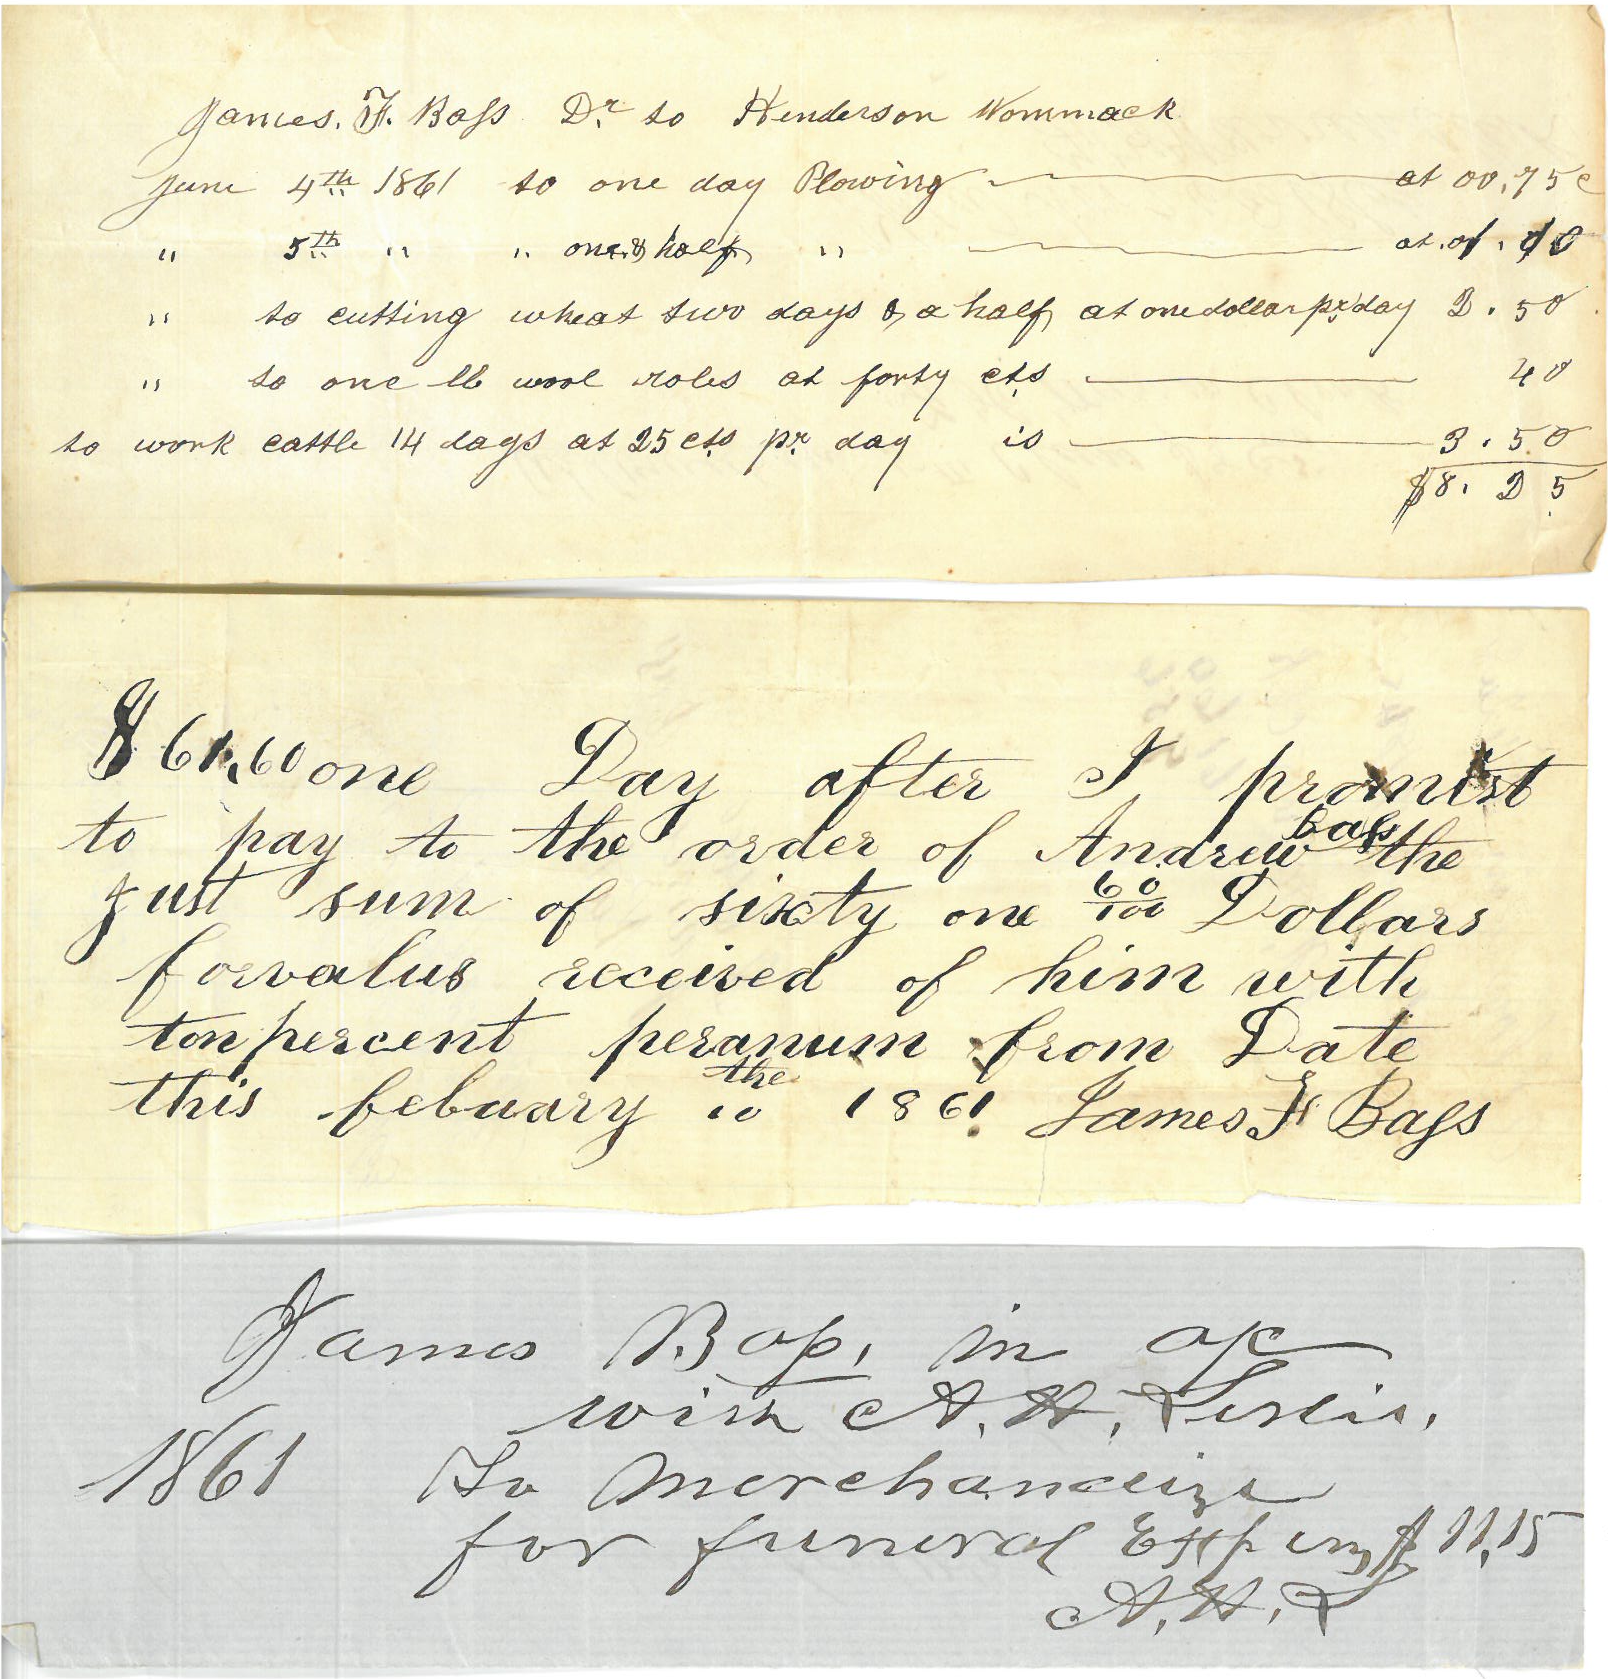 James. F. Bass Dr. to Henderson Wommack
June 4th 1861 to one day Plowing at 00,75c
" 5th " " one & half " at. 01. 10
" to cutting wheat two days & a half at one dollar pr day 2.50
" to one lb wool roles at forty cts 40
to work cattle 14 days at 25 cts pr day is 3.50
$8.25
$61,60 one Day after I promist
to pay to the order of Andrew bass the
Just sum of sixty one 60/100 Dollars
forvalus received of him with
ton percent peranum from Date
this febuary the 10 1861 James F Bass
James Bass, in ac
with A. H. Leslie,
1861 To Merchandize
for funeral Exspenz $11,15
A. H. L